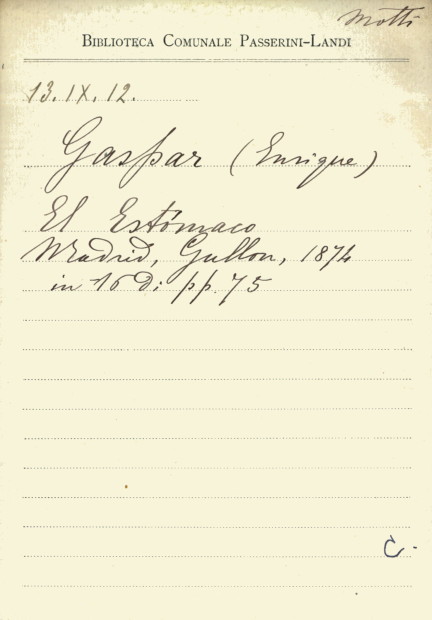 Motti
BIBLIOTECA COMUNALE PASSERINI-LANDI
13.IX.12.
Gaspar (Enrique)
El Estómaco
Madrid, Gullon, 1874
in 16 Di pp. 75
C.